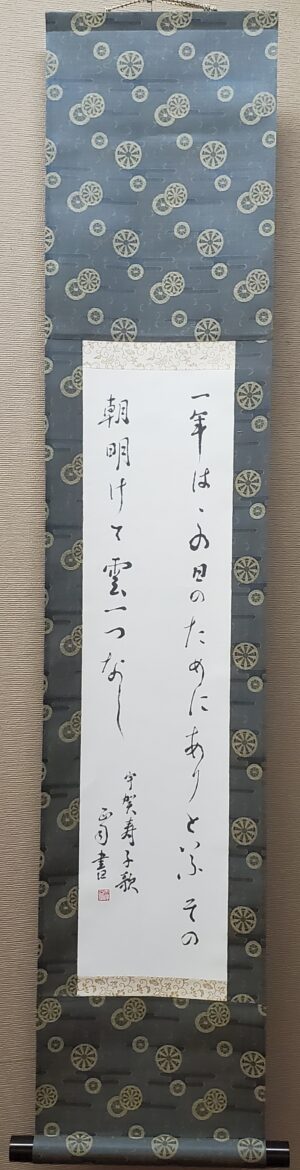 一年はこの日のためにありといふ その
朝明けて雲一つなし
宇賀寿子歌
書